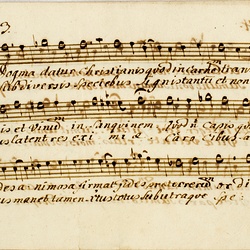 3.
Dogma datur Christianis quod in Carnem tran
Sub diversis speciebus signis tantum et non
is et Vinum in sanguinem. capis
us latent res exi mi æ Caro cibus
des animosa firmat fides præter rerum ordi
us manet tamen Xtus totus sub utraque spe